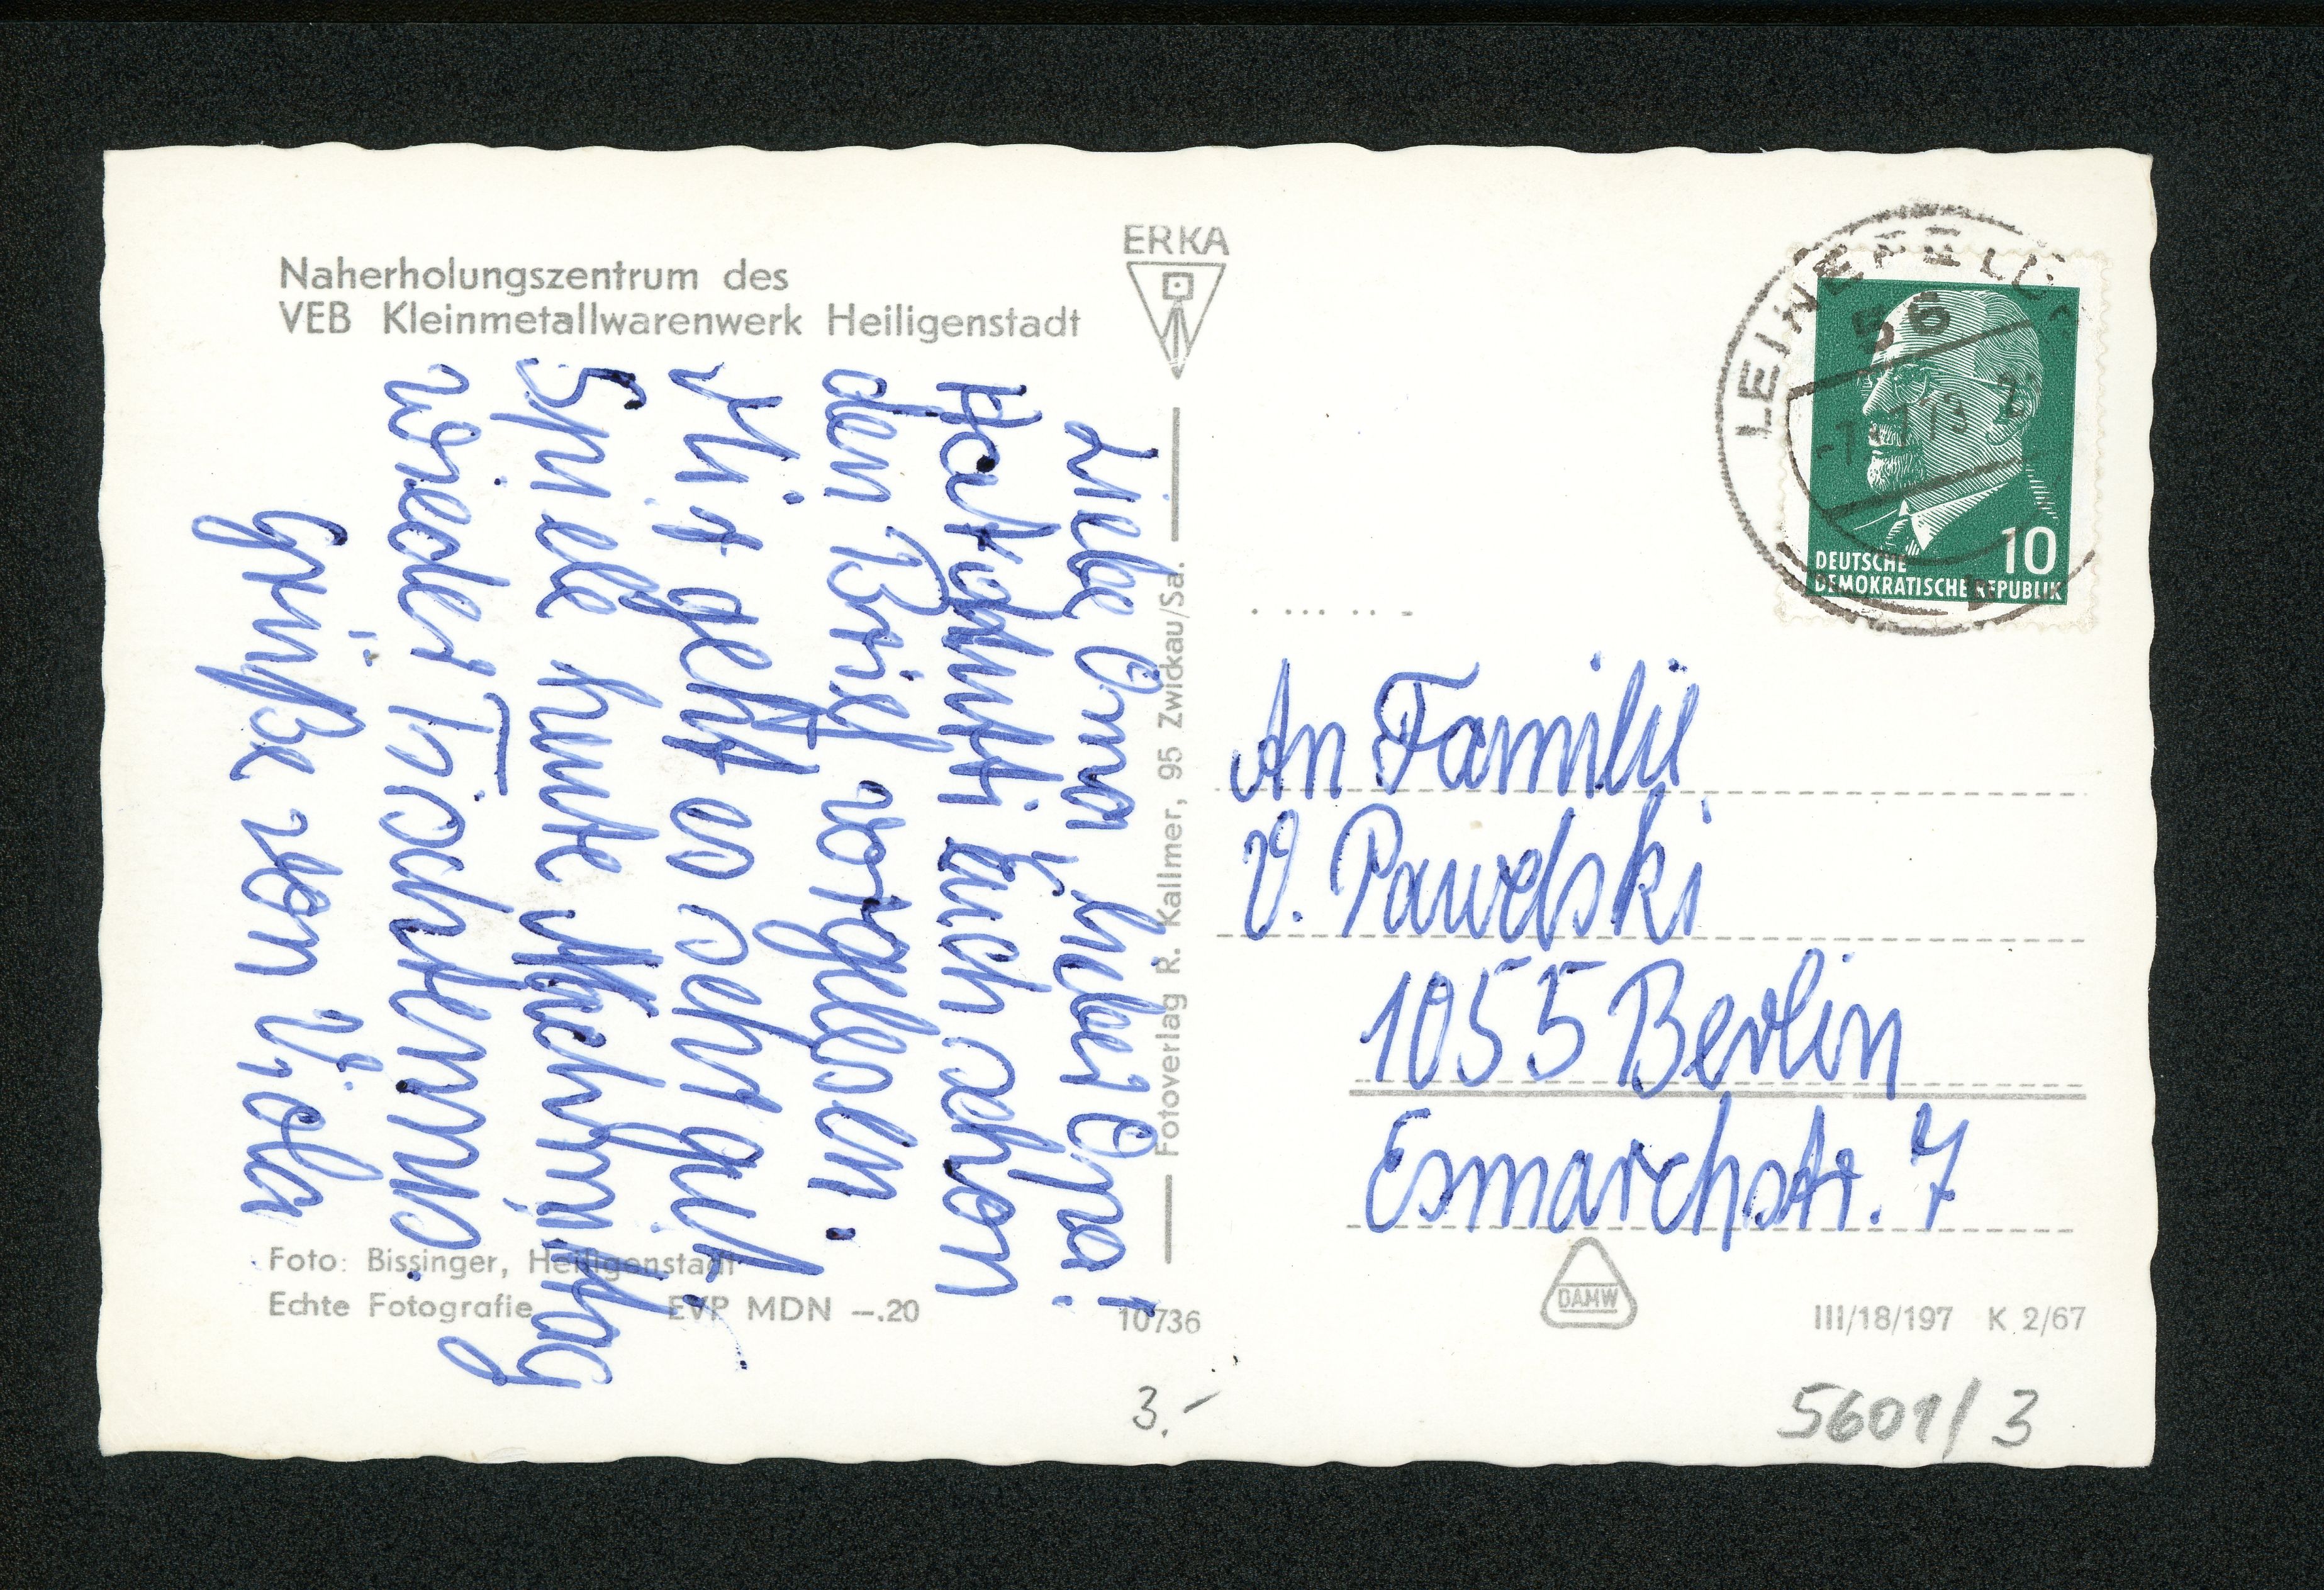 Naherholungszentrum des
VEB Kleinmetallwarenwerk Heiligenstadt
Liebe Oma, lieber Opa!
Hat Euch schon
den Brief vorgelesen.
Mir geht es sehr gut.
Spiele heute Nachmittag
wieder Tischtennis.
Grüße von Viola
Foto: Bissinger, Heiligenstadt
Echte Fotografie EVP MDN —.20
10736
ERKA
Fotoverlag R. Kallmer, 95 Zwickau/Sa.
56
10
DEUTSCHE
DEMOKRATISCHE REPUBLIK
An Familie
V. Pawelski
1055 Berlin
Esmarchstr. 7
DAMW
III/18/197 K 2/67
3.-
5601/3